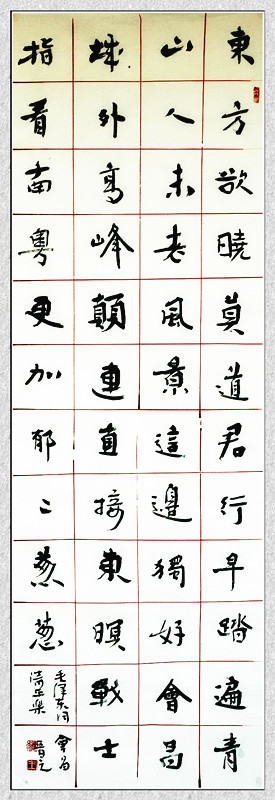 東方欲曉莫道君行早踏遍青
山人未老風景這邊獨好會昌
城外高峰顛連直接東溟戰士
指看南粵更加郁〻葱葱
毛澤東詞
清平樂
會昌